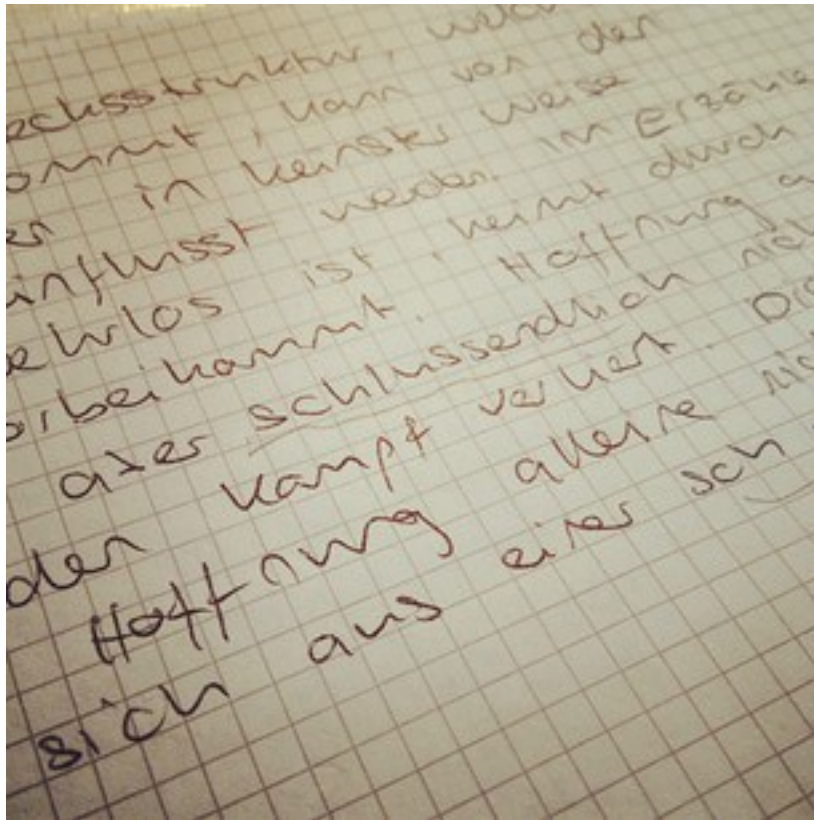 echsstruktur, welch
ommt, kann von den
er in keinster weise
influsst werden. im Erzähle
ehrlos ist, keimt durch
orbeikommt. Hoffnung a
aber schlussendlich nich
den Kampf verliert. Die
Hoffnung alleine nic
sich aus einer sch